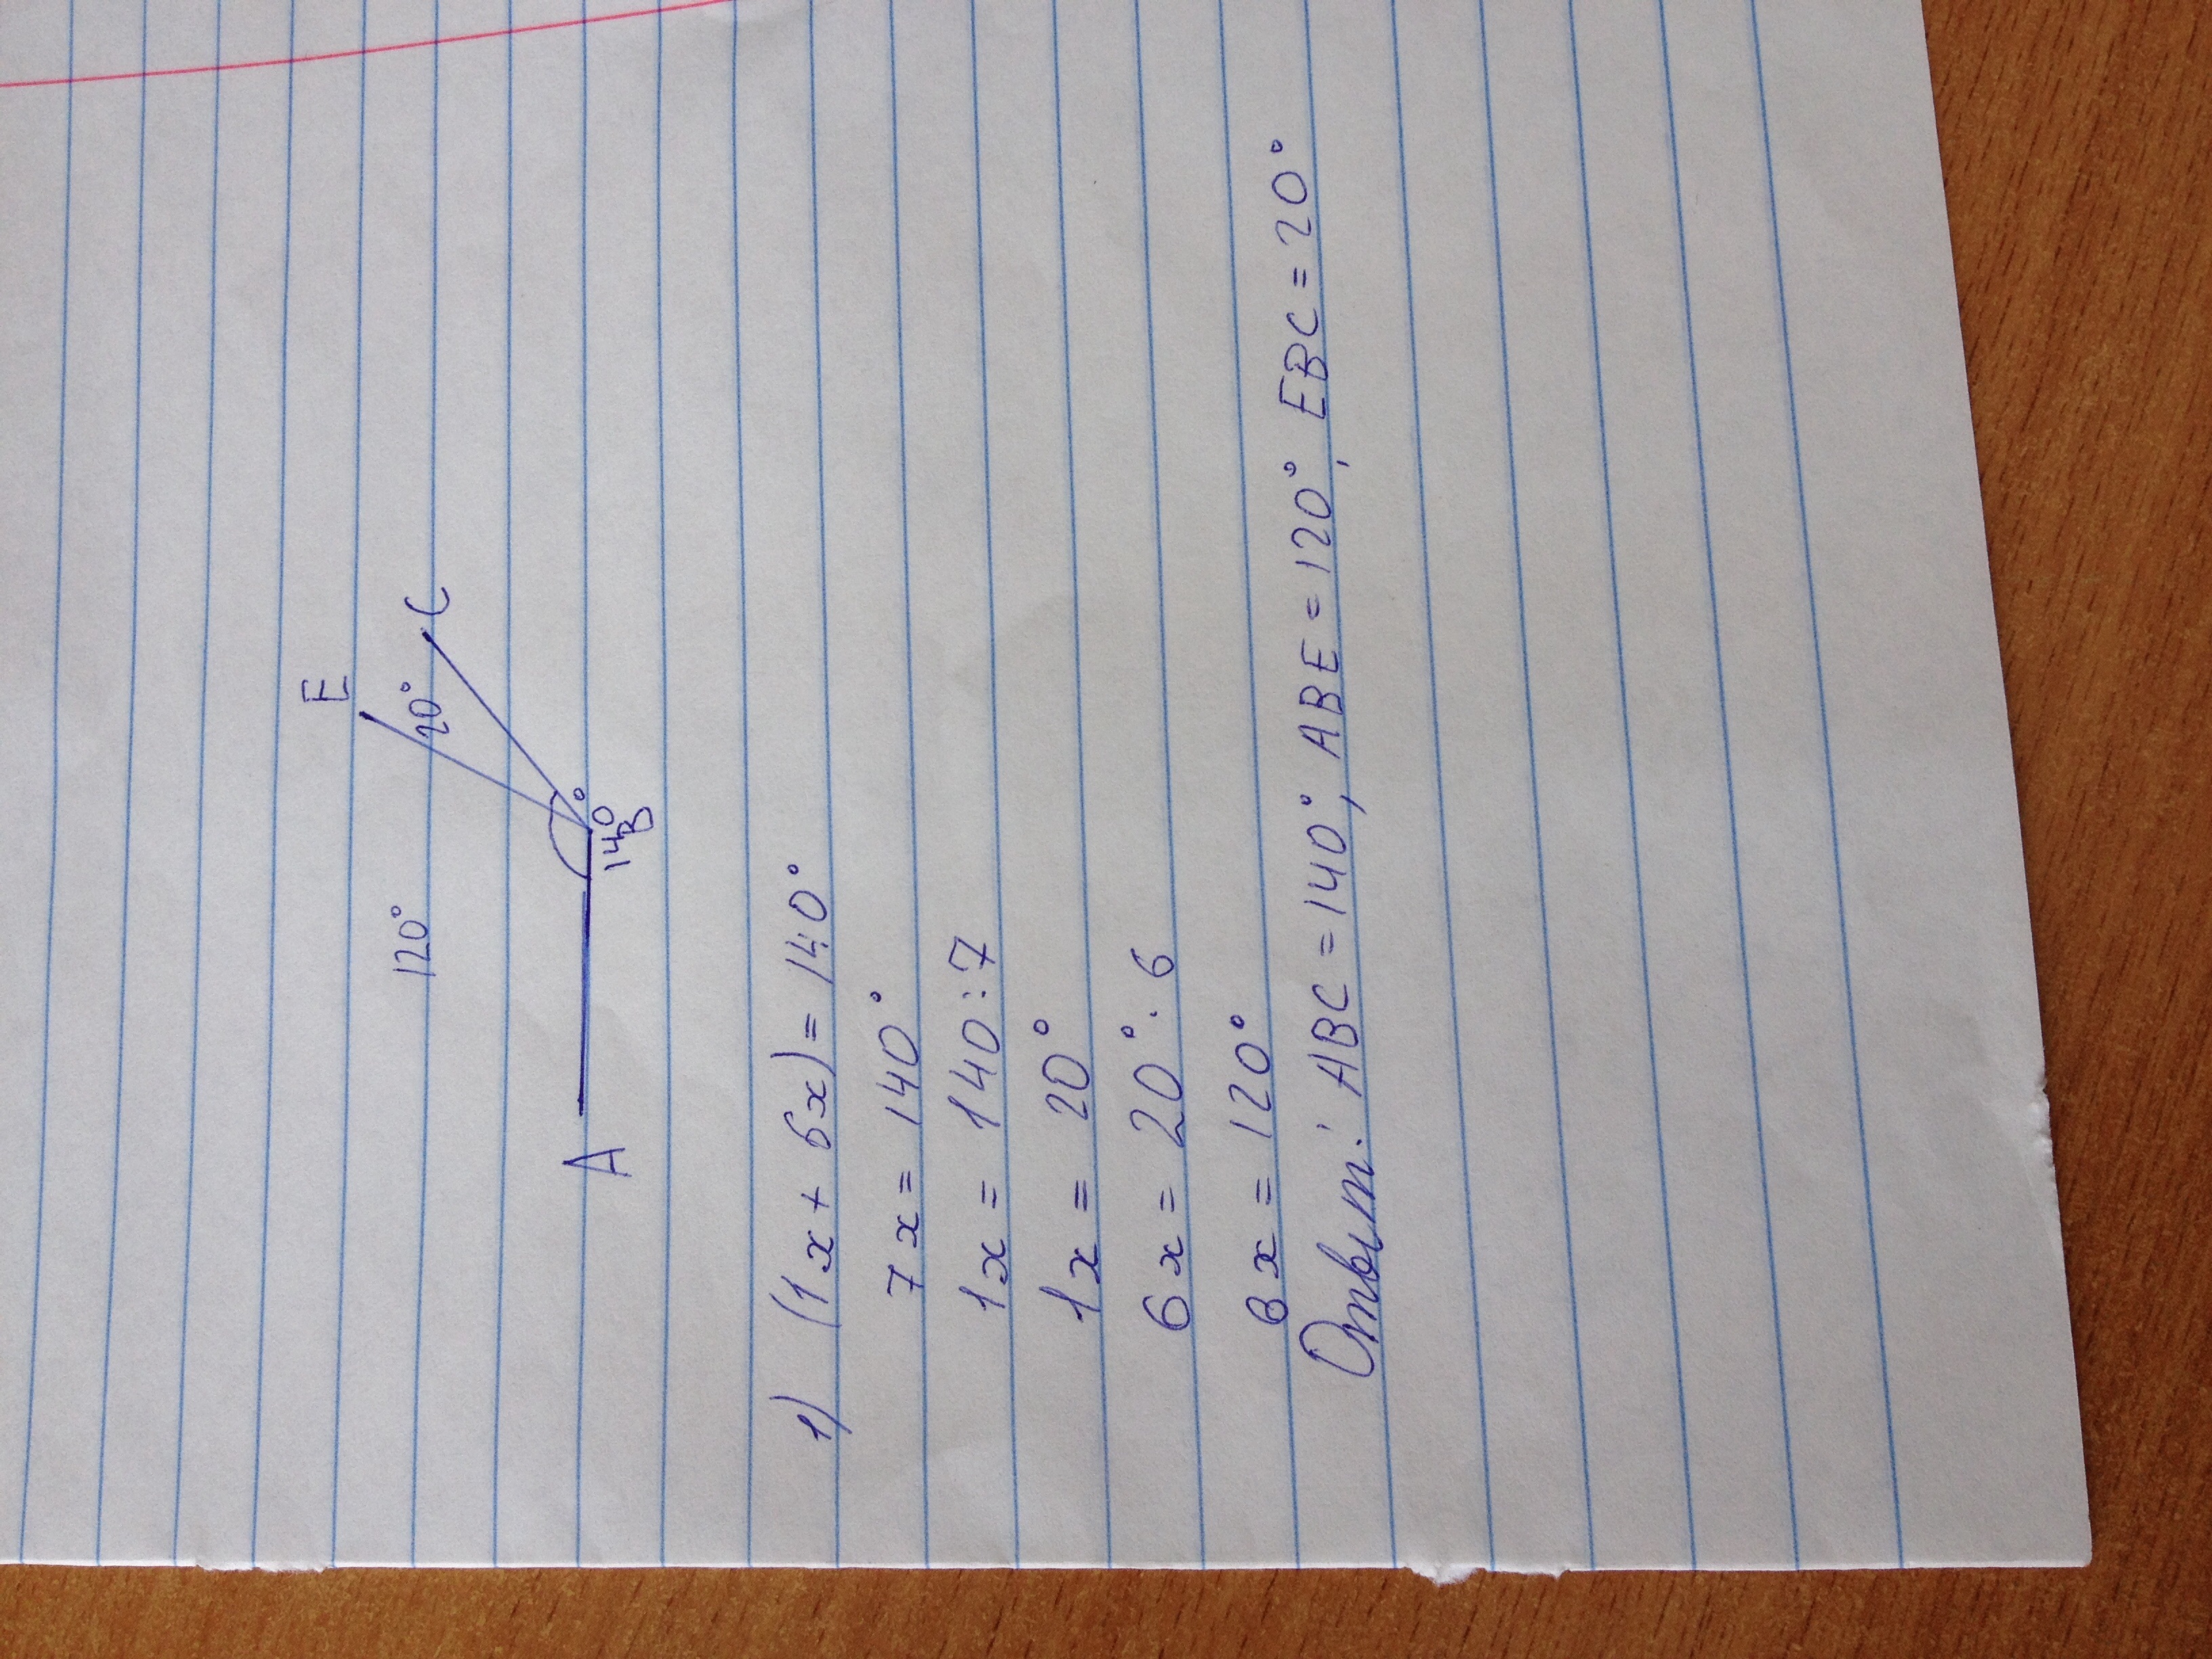 E
120°
20°
C
A
140°
B
1) (1x + 6x) = 140°
7x = 140°
1x = 140 : 7
1x = 20°
6x = 20° · 6
6x = 120°
Ответ: ABC = 140°, ABE = 120°, EBC = 20°